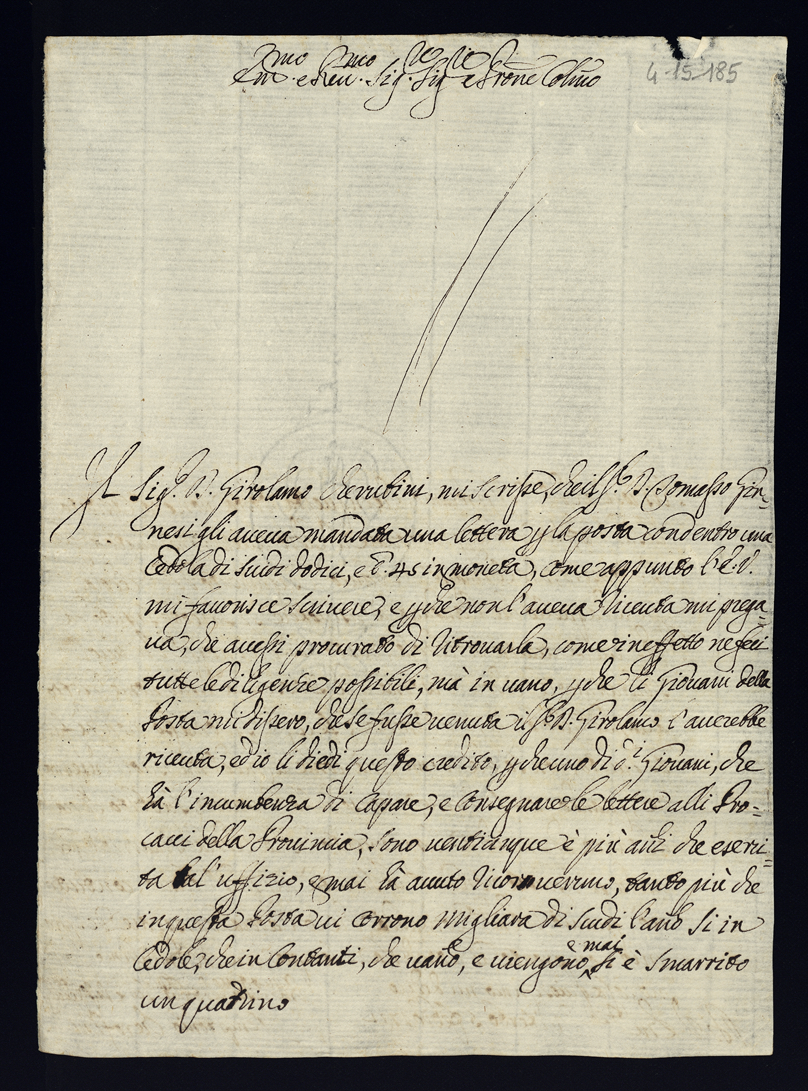 Em.mo e Reu.mo Sig.re Sig.re e Prone Colmo
4-15-185
Il Sig.r D. Girolamo Cherubini, mi scrisse, che il S.r D. Tomasso Gin=
nesi gli aueua mandata una lettera p la posta con dentro una
Cedola di scudi dodici, e b. 45 in moneta, come appunto l'E.V.
mi fauorisce scriuere, e p che non l'aueua riceuta mi prega=
ua, che auessi procurato di ritrouarla, come in effetto ne feci
tutte le diligenze possibili, mà in uano, p che li Giouani della
Posta mi dissero, che se fusse uenuta il S.r D. Girolamo l'auerebbe
riceuta, ed io li diedi questo credito, p che uno di d.i Giouani, che
hà l'incumbenza di capare, e consegnare le lettere alli Pro=
cacci della Prouincia, sono uenticinque è più anni che eserci=
ta tal'uffizio, e mai hà auuto ueruno, tanto più che
in questa Posta ui corrono migliara di scudi l'anno si in
Cedole, che in Contanti, che uanno, e uiengono, e mai si è smarrito
un quatrino